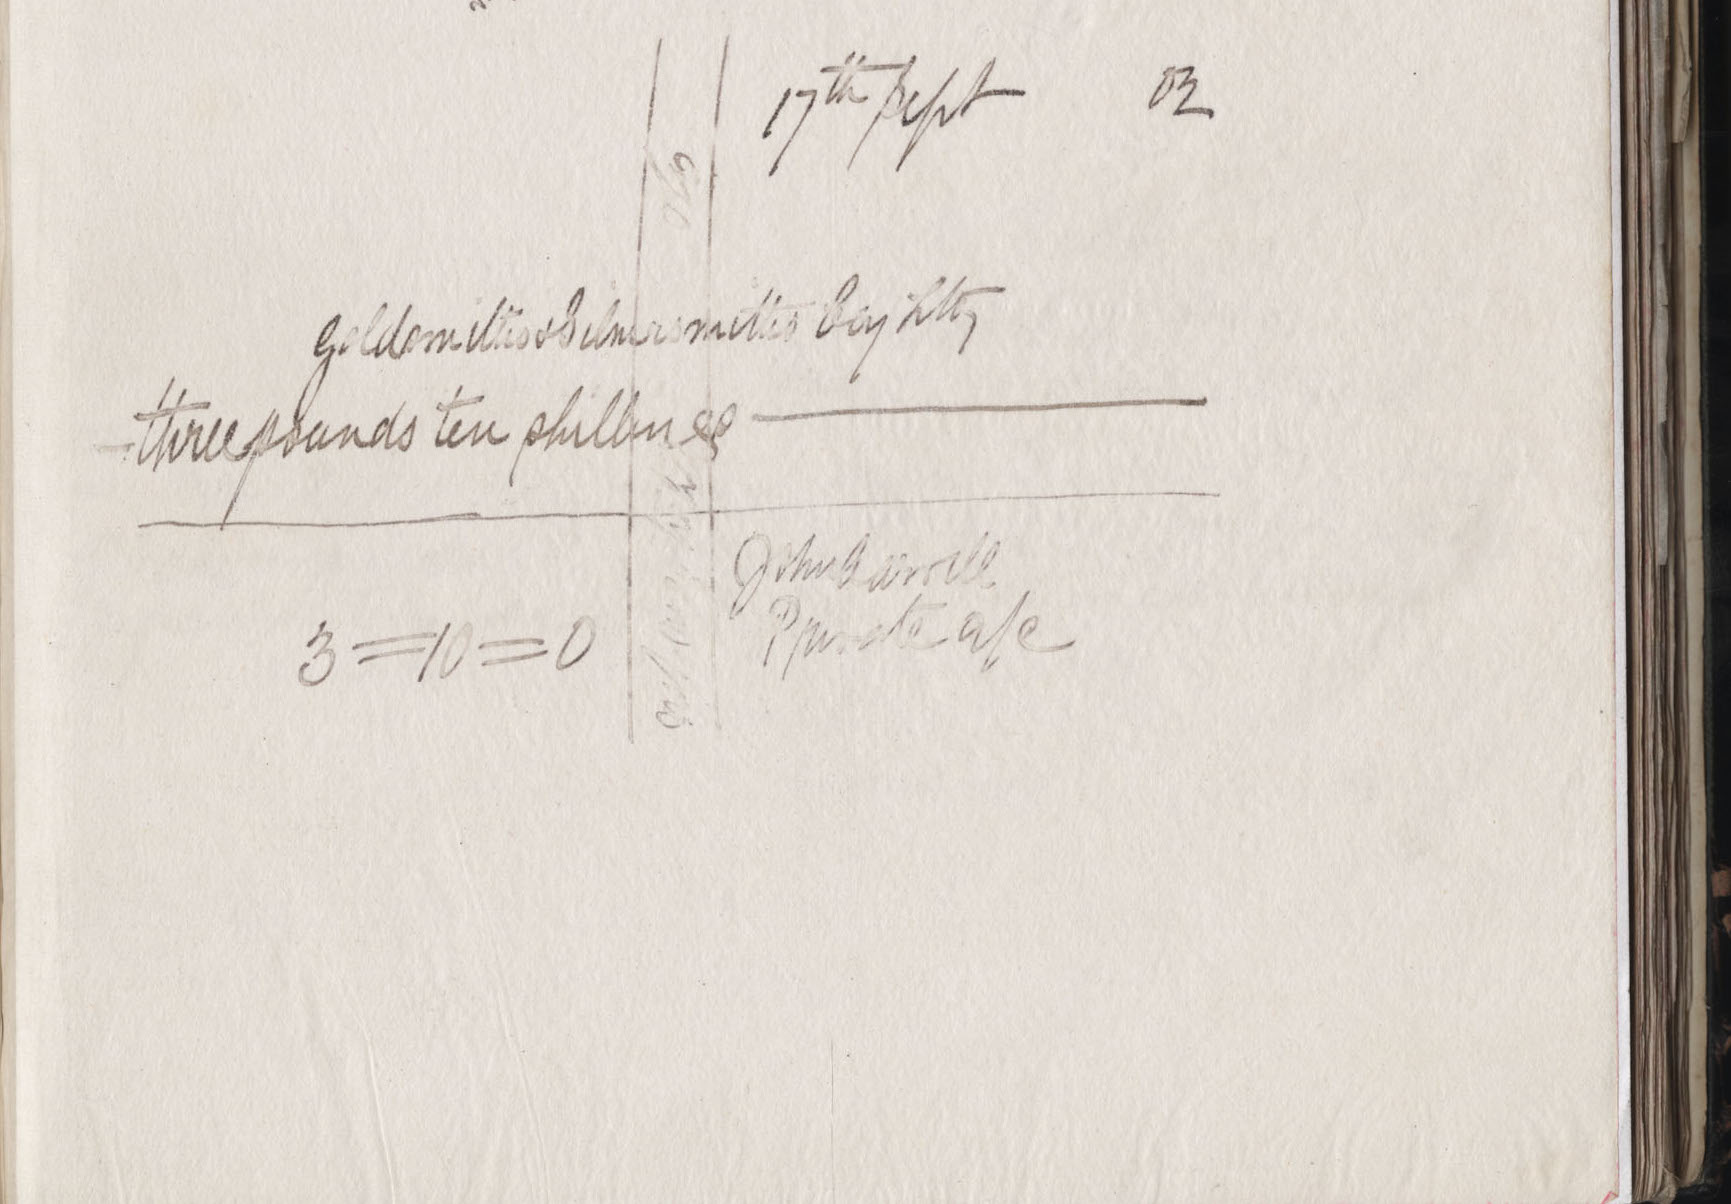 17th Sept 02
Goldsmiths & Silversmiths Coy Ltd
three pounds ten shillings
John Carroll
3 = 10 = 0
Private a/c
& Co